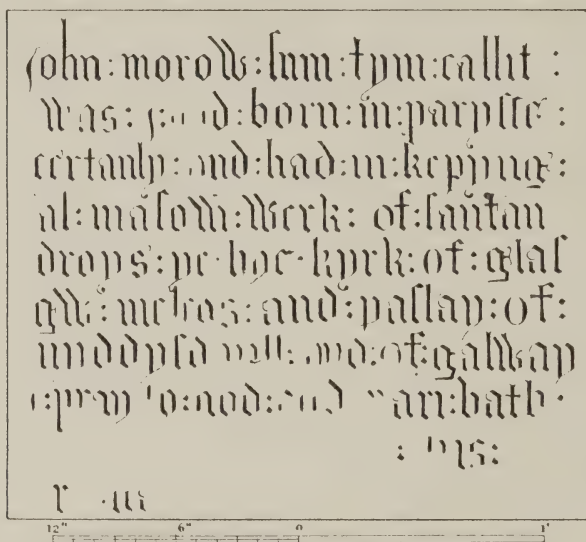 John:morow:sum:tym:callit :
was: born:in:parysse :
certanly:and:had:in:kepyng:
al:mason:werk: of:santan
droys:ye·hye·kyrk:of:glas
gw:melros:and:paslay:of:
nyddysdayll:and:of:galway
pray to:god:and mari:bath·
12" 6" 0 1'